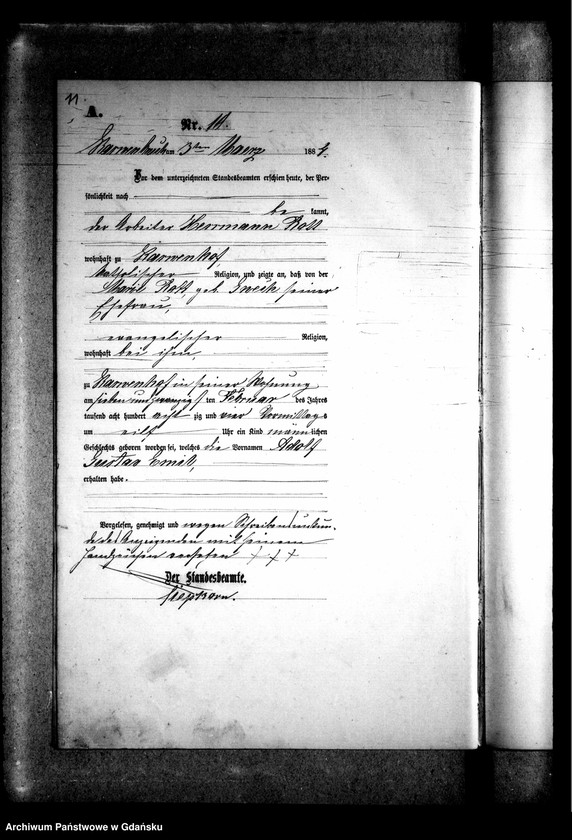 11
A.
Nr. 11.
am 3ten Maerz 1884.
Vor dem unterzeichneten Standesbeamten erschien heute, der Per-
sönlichkeit nach
be kannt,
der Arbeiter Herrmann Rott
wohnhaft zu Karwenhof,
katholischer Religion, und zeigte an, daß von der
Marie Rott, geb. seiner
Ehefrau,
evangelischer Religion,
wohnhaft bei ihm,
zu Karwenhof in seiner Wohnung
am sieben und zwanzigsten Februar des Jahres
tausend acht hundert acht zig und vier Vormittags
um eilf Uhr ein Kind männlichen
Geschlechts geboren worden sei, welches die Vornamen Adolf
Gustav Emil,
erhalten habe.
Vorgelesen, genehmigt und wegen Schreibensunkun-
de des Anzeigenden mit seinem
Handzeichen versehen + + +
Der Standesbeamte.
Archiwum Państwowe w Gdańsku